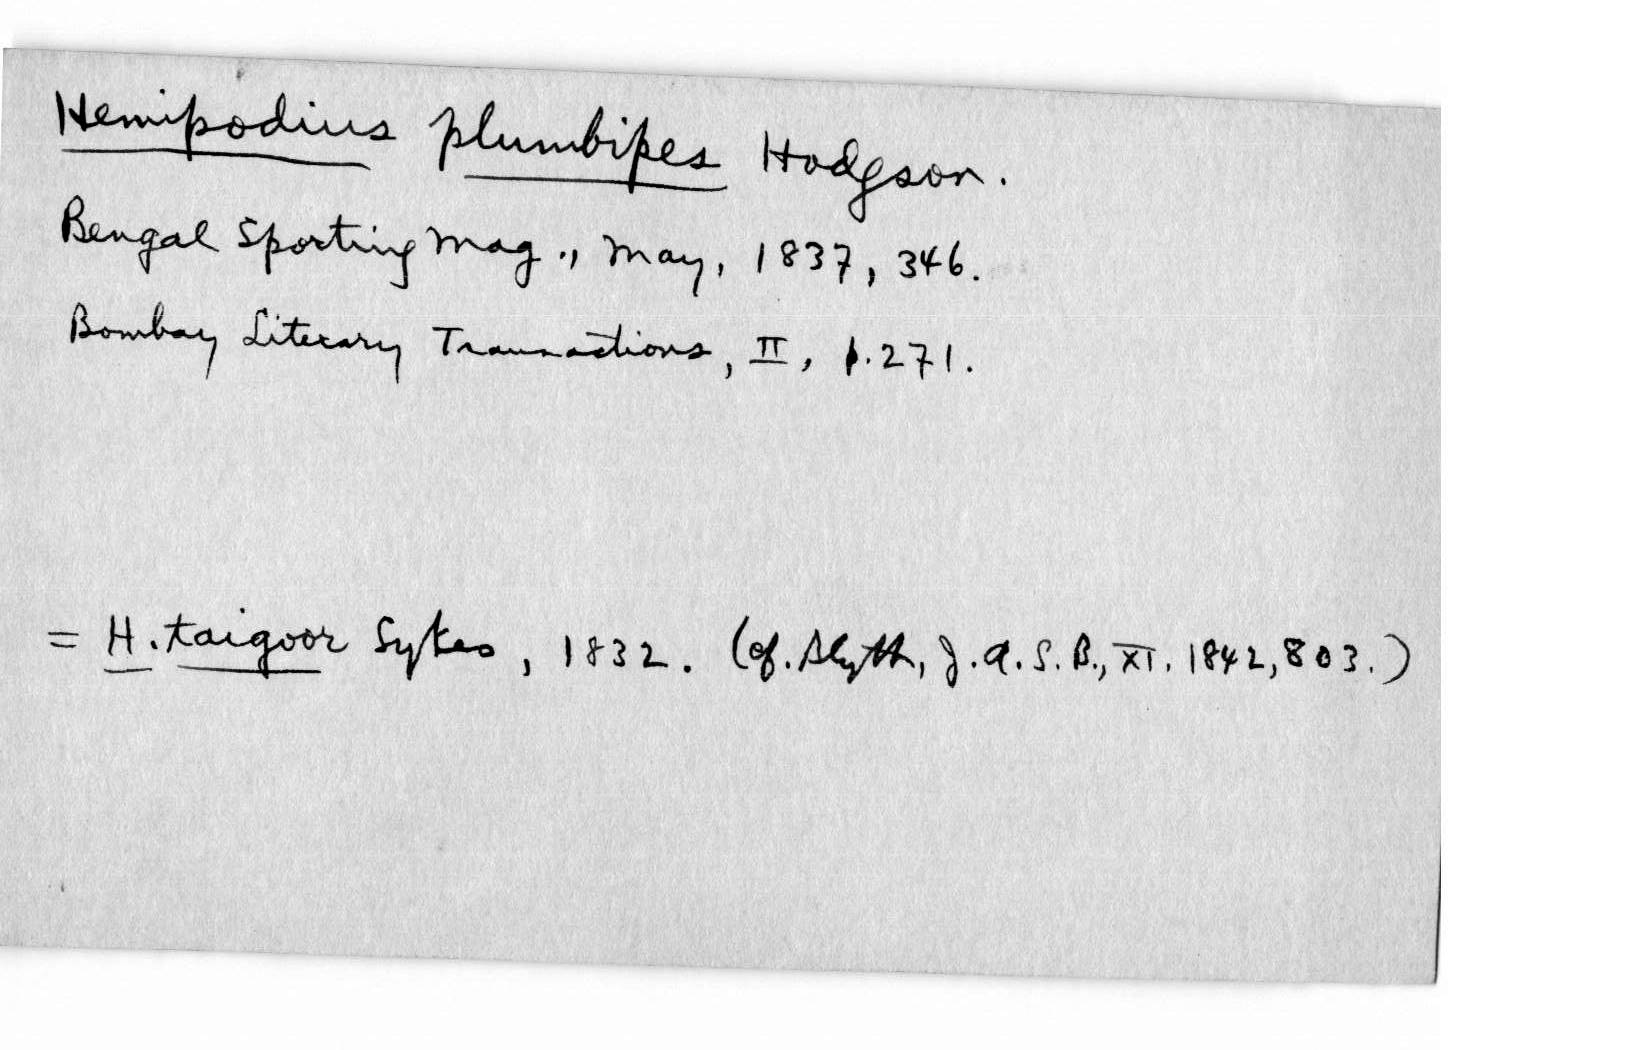 Hemipodius plumbipes Hodgson.
Bengal Sporting Mag., May, 1837, 346.
Bombay Literary Transactions, II, p. 271.
= H. taigoor Sykes, 1832. (cf. Blyth, J. A. S. B., XI. 1842, 803.)